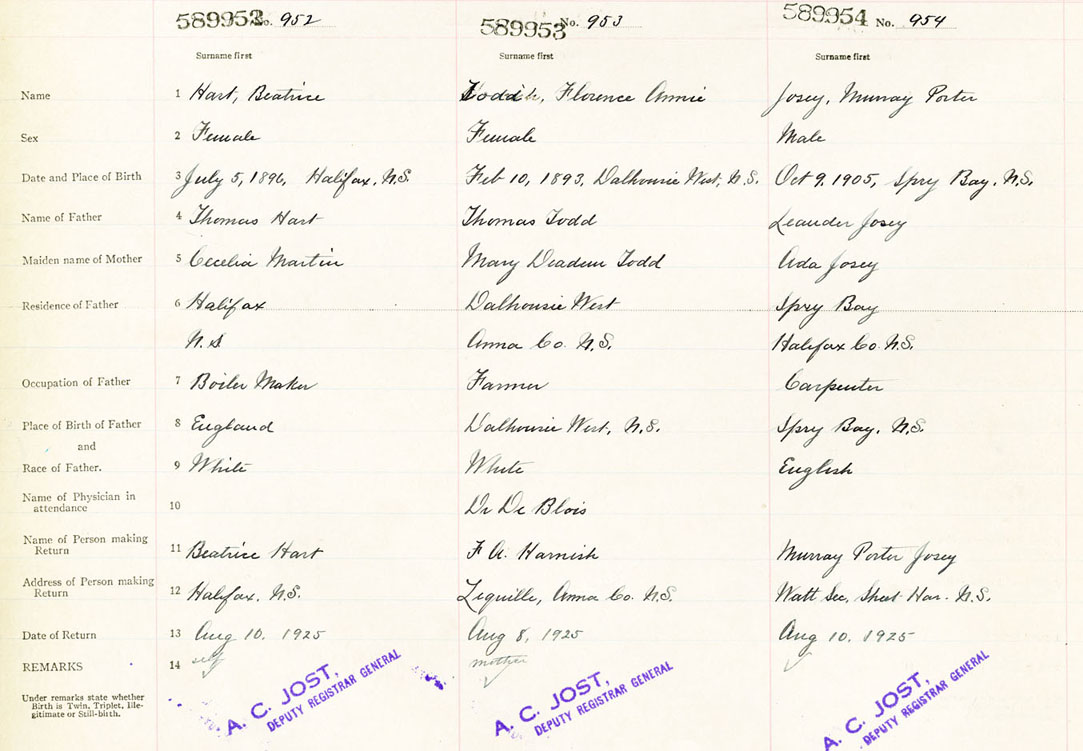 589952 No. 952 589953 No. 953 589954 No. 954
Surname first Surname first Surname first
Name 1 Hart, Beatrice Todd, Florence Annie Josey, Murray Porter
Sex 2 Female Female Male
Date and Place of Birth 3 July 5, 1896, Halifax, N.S. Feb 10, 1893, Dalhousie West, N.S. Oct 9, 1905, Spry Bay, N.S.
Name of Father 4 Thomas Hart Thomas Todd Leander Josey
Maiden name of Mother 5 Cecelia Martin Mary Todd Ada Josey
Residence of Father 6 Halifax Dalhousie West Spry Bay
N.S Anna Co. N.S. Halifax Co. N.S.
Occupation of Father 7 Boiler Maker Farmer Carpenter
Place of Birth of Father 8 England Dalhousie West, N.S. Spry Bay, N.S.
and
Race of Father. 9 White White English
Name of Physician in
attendance 10 Dr De Blois
Name of Person making
Return 11 Beatrice Hart F A. Harnish Murray Porter Josey
Address of Person making
Return 12 Halifax, N.S. Lequille, Anna Co. N.S. Watt Sec, Sheet Har. N.S.
Date of Return 13 Aug 10, 1925 Aug 8, 1925 Aug 10, 1925
REMARKS 14 self mother
Under remarks state whether
Birth is Twin, Triplet, Ille-
gitimate or Still-birth.
A. C. JOST, A. C. JOST, A. C. JOST,
DEPUTY REGISTRAR GENERAL DEPUTY REGISTRAR GENERAL DEPUTY REGISTRAR GENERAL